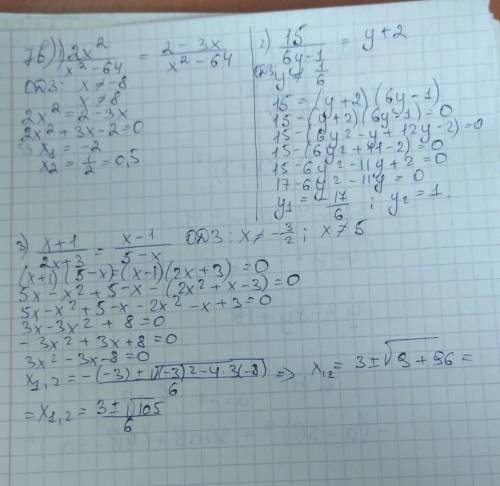 76) 1) 2x² / (x²-64) = (2-3x) / (x²-64)
ОДЗ: x ≠ -8
x ≠ 8
2x² = 2-3x
2x²+3x-2=0
x₁ = -2
x₂ = 1/2 = 0,5
2) 15 / (6y-1) = y+2
ОДЗ y ≠ 1/6
15 = (y+2)(6y-1)
15-(y+2)(6y-1)=0
15-(6y²-y+12y-2)=0
15-(6y²+11-2)=0
15-6y²-11y+2=0
17-6y²-11y=0
y₁ = -17/6 ; y₂ = 1.
3) (x+1) / (2x+3) = (x-1) / (5-x) ОДЗ: x ≠ -3/2 ; x ≠ 5
(x+1)(5-x)=(x-1)(2x+3)=0
5x-x²+5-x-(2x²+x-3)=0
5x-x²+5-x-2x²-x+3=0
3x-3x²+8=0
-3x²+3x+8=0
3x²-3x-8=0
x₁,₂ = (-(-3)±√((-3)²-4·3(-8))) / 6 => x₁,₂ = 3±√9+96 =
= x₁,₂ = (3±√105) / 6